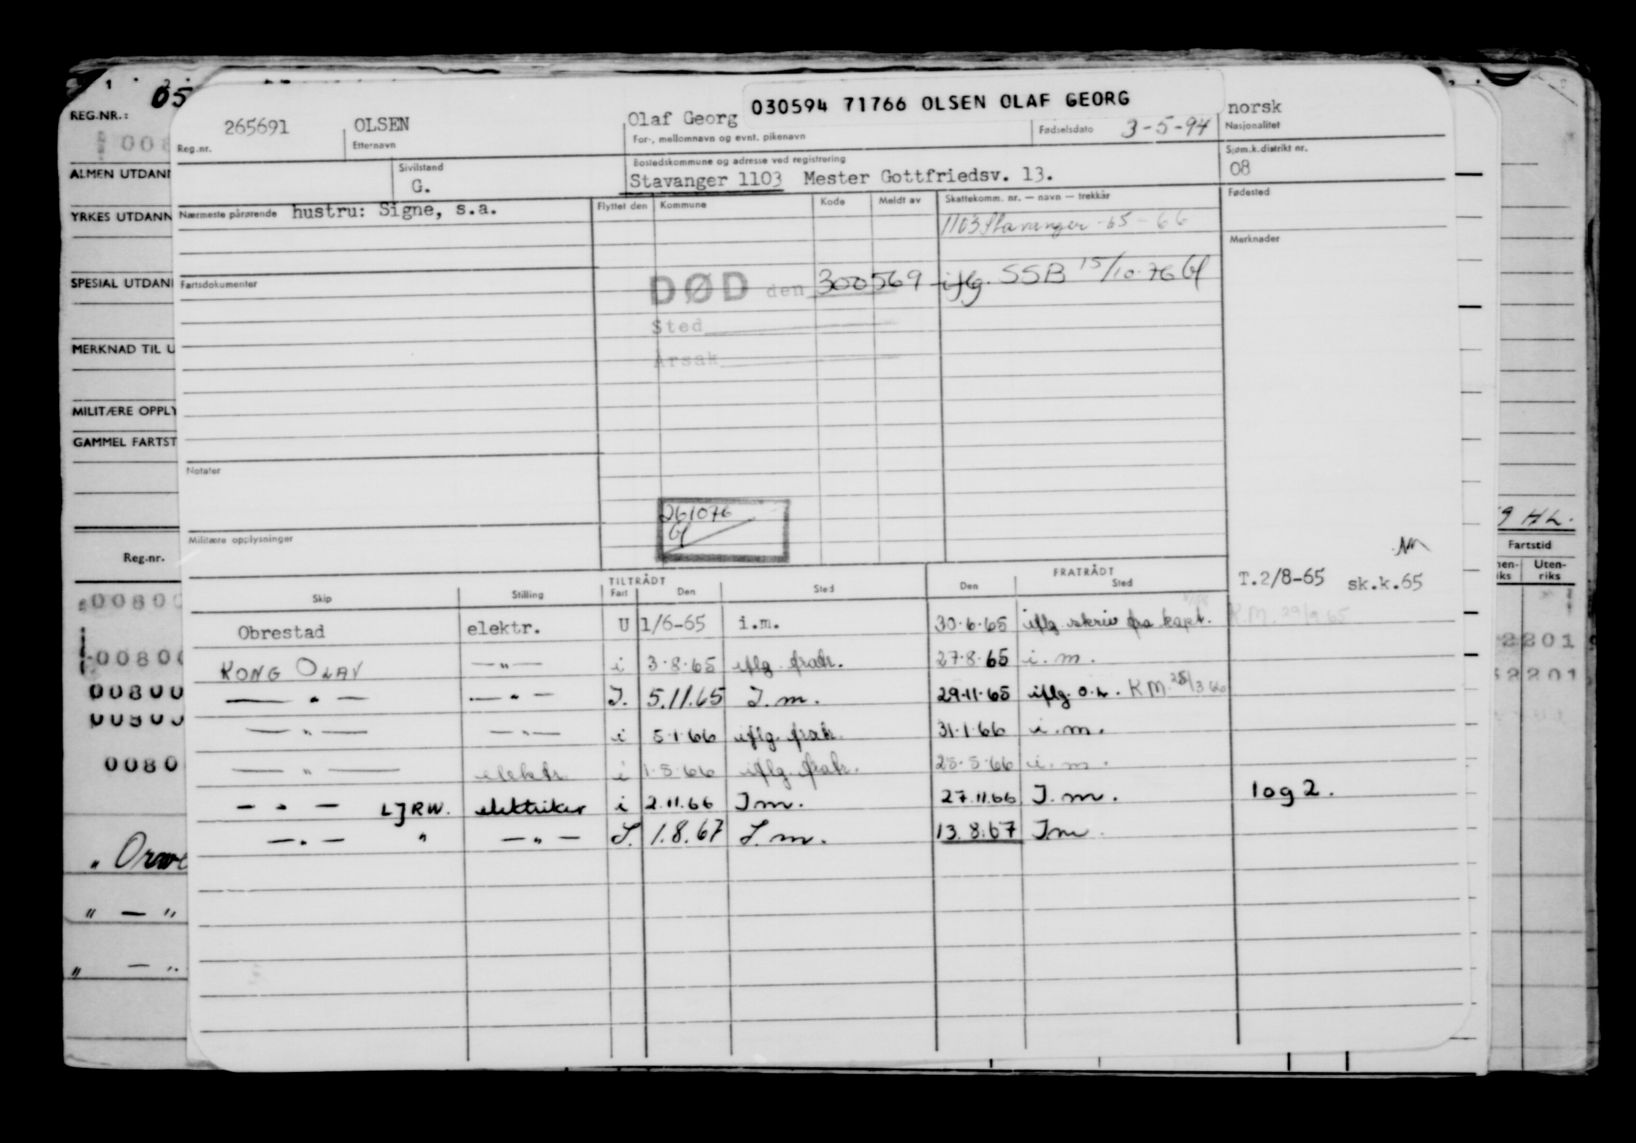 030594 71766 OLSEN OLAF GEORG
265691 OLSEN Olaf Georg 3-5-94 norsk
Reg.nr. Etternavn For-, mellomnavn og evnt. pikenavn Fødselsdato Nasjonalitet
Sivilstand Bostedskommune og adresse ved registrering Sjøm.k.distrikt nr.
G. Stavanger 1103 Mester Gottfriedsv. 13. 08
Nærmeste pårørende hustru: Signe, s.a. Flyttet den Kommune Kode Meldt av Skattekomm. nr. — navn — trekkår Fødested
1103 Stavanger -65-66
Merknader
Fartsdokumenter
DØD den 300569 iflg. SSB 15/10-76
Sted
Årsak
Notater
261076
Militære opplysninger
TILTRÅDT FRATRÅDT
Skip Stilling Fart Den Sted Den Sted
T.2/8-65 sk.k.65
Obrestad elektr. U 1/6-65 i.m. 30.6.65 iflg skriv fra kapt. K.M. 29/9 65
KONG OLAV —"— i 3.8.65 iflg. fratr. 27.8.65 i.m.
— " — — " — I. 5.11.65 I.m. 29.11.65 iflg. o.k. KM. 28/3 66
— " — — " — i 5.1.66 iflg. fratr. 31.1.66 i.m.
— " — elektr. i 1.5.66 iflg. fratr. 25.5.66 i.m.
— " — LJRW. elektriker i 2.11.66 Im. 27.11.66 I.m. log 2.
— " — " — " — I. 1.8.67 I.m. 13.8.67 Im
05
REG.NR.:
ALMEN UTDAN
YRKES UTDANN
SPESIAL UTDAN
MERKNAD TIL U
MILITÆRE OPPLY
GAMMEL FARTST
Reg.nr.
0080
00800
00800
00800
0080
" — "
" — "
9 HL.
Fartstid
Uten-
riks
2201
2201